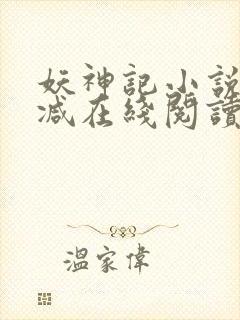 妖神記小說
減在綫閱讀
溫家偉